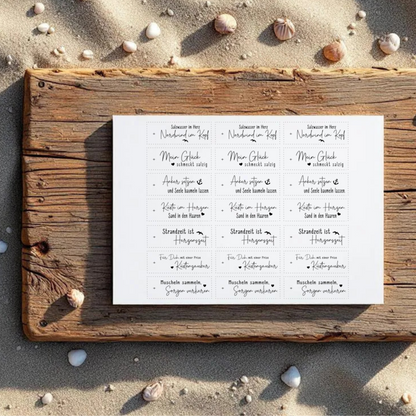 Salzwasser im Herz Salzwasser im Herz Salzwasser im Herz
Nordwind im Kopf Nordwind im Kopf Nordwind im Kopf
Mein Glück Mein Glück Mein Glück
schmeckt salzig schmeckt salzig schmeckt salzig
Anker setzen Anker setzen Anker setzen
und Seele baumeln lassen und Seele baumeln lassen und Seele baumeln lassen
Küste im Herzen Küste im Herzen Küste im Herzen
Sand in den Haaren Sand in den Haaren Sand in den Haaren
Strandzeit ist Strandzeit ist Strandzeit ist
Herzenszeit Herzenszeit Herzenszeit
Für Dich mit einer Prise Für Dich mit einer Prise Für Dich mit einer Prise
Küstenzauber Küstenzauber Küstenzauber
Muscheln sammeln, Muscheln sammeln, Muscheln sammeln,
Sorgen verlieren Sorgen verlieren Sorgen verlieren